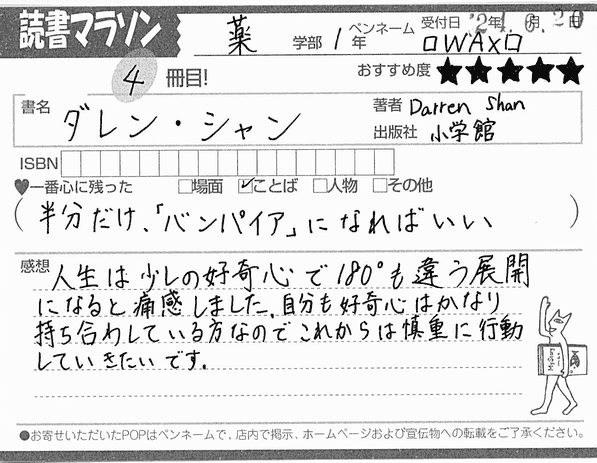 読書マラソン 薬 学部 1年 ペンネーム □WAX□ 受付日 '24年6月20日
4 冊目! おすすめ度 ★★★★★
書名 ダレン・シャン 著者 Darren Shan
出版社 小学館
ISBN
♥一番心に残った □場面 ☑ことば □人物 □その他
(半分だけ、「バンパイア」になればいい)
感想 人生は少しの好奇心で180°も違う展開
になると痛感しました。自分も好奇心はかなり
持ち合わしている方なのでこれからは慎重に行動
していきたいです。
●お寄せいただいたPOPはペンネームで、店内で掲示、ホームページおよび宣伝物への転載をご了承ください。